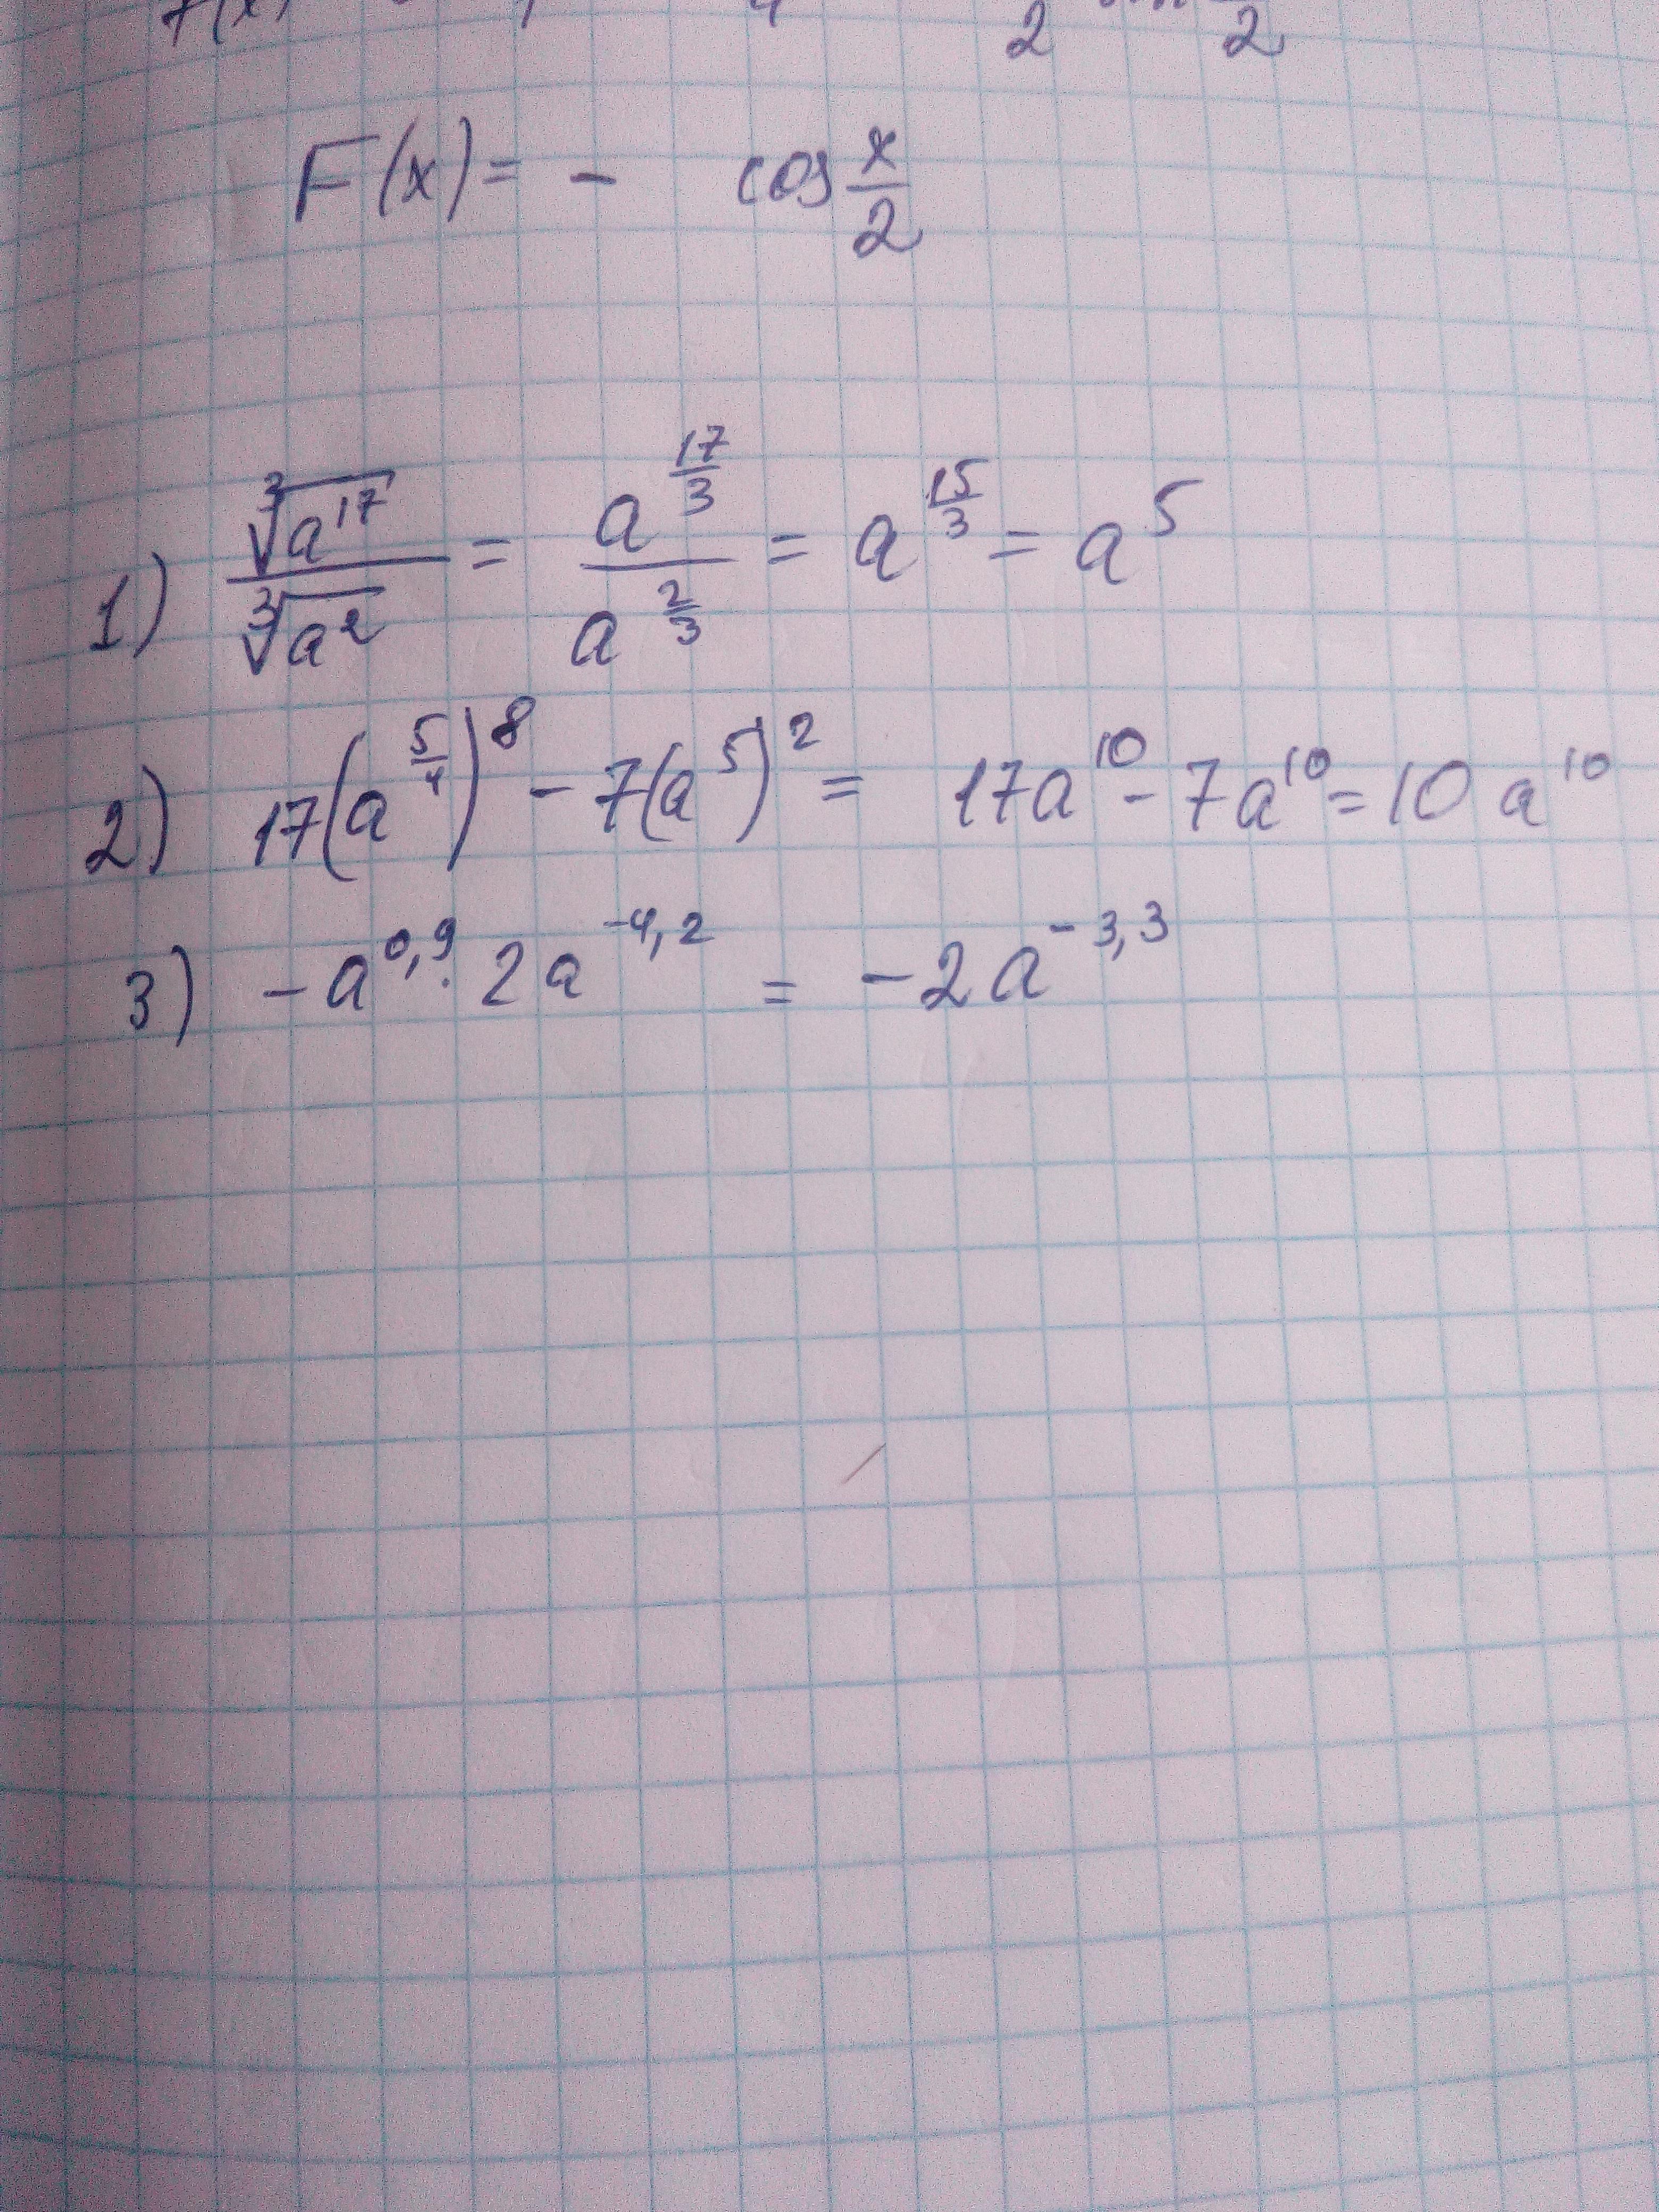 2 2
F(x) = - cos x/2
1) ∛a¹⁷ / ∛a² = a^(17/3) / a^(2/3) = a^(15/3) = a⁵
2) 17(a^(5/4))⁸ - 7(a⁵)² = 17a¹⁰ - 7a¹⁰ = 10 a¹⁰
3) -a^(0,9) · 2a^(-4,2) = -2a^(-3,3)